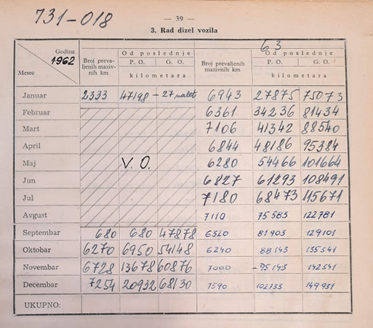 731-018
— 39 —
3. Rad dizel vozila
Godina 1962 Mesec Broj prevaljenih mazivnih km Od poslednje P. O. G. O. kilometara Broj prevaljenih mazivnih km 63 Od poslednje P. O. G. O. kilometara
Januar 2333 47198 - 27 6943 27875 75073
Februar 6361 34236 81434
Mart 7106 41342 88540
April 6844 48186 95384
Maj V. O. 6280 54466 101664
Jun 6827 61293 108491
Jul 7180 68473 115671
Avgust 7110 75583 122781
Septembar 680 680 47878 6320 81903 129101
Oktobar 6270 6950 54148 6240 88143 135341
Novembar 6728 13678 60876 7000 95143 142341
Decembar 7254 20932 68130 7590 102733 149931
UKUPNO: